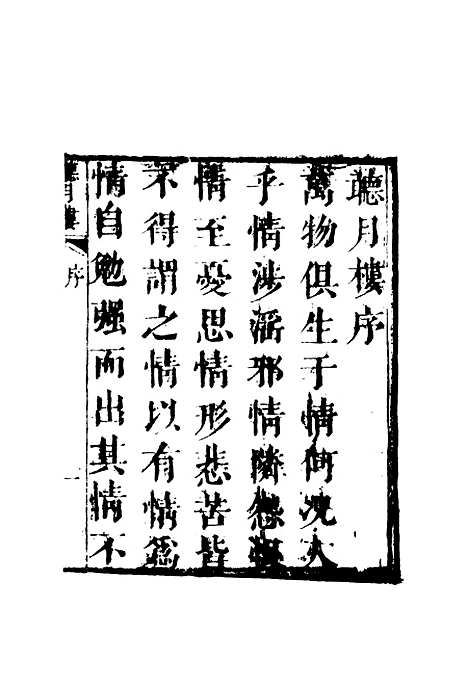 聽月樓序
萬物俱生于情何况人
乎情涉滛邪情隣
情至憂思情形悲苦皆
不得謂之情以有情
情自勉强而出其情不
月樓
序
一